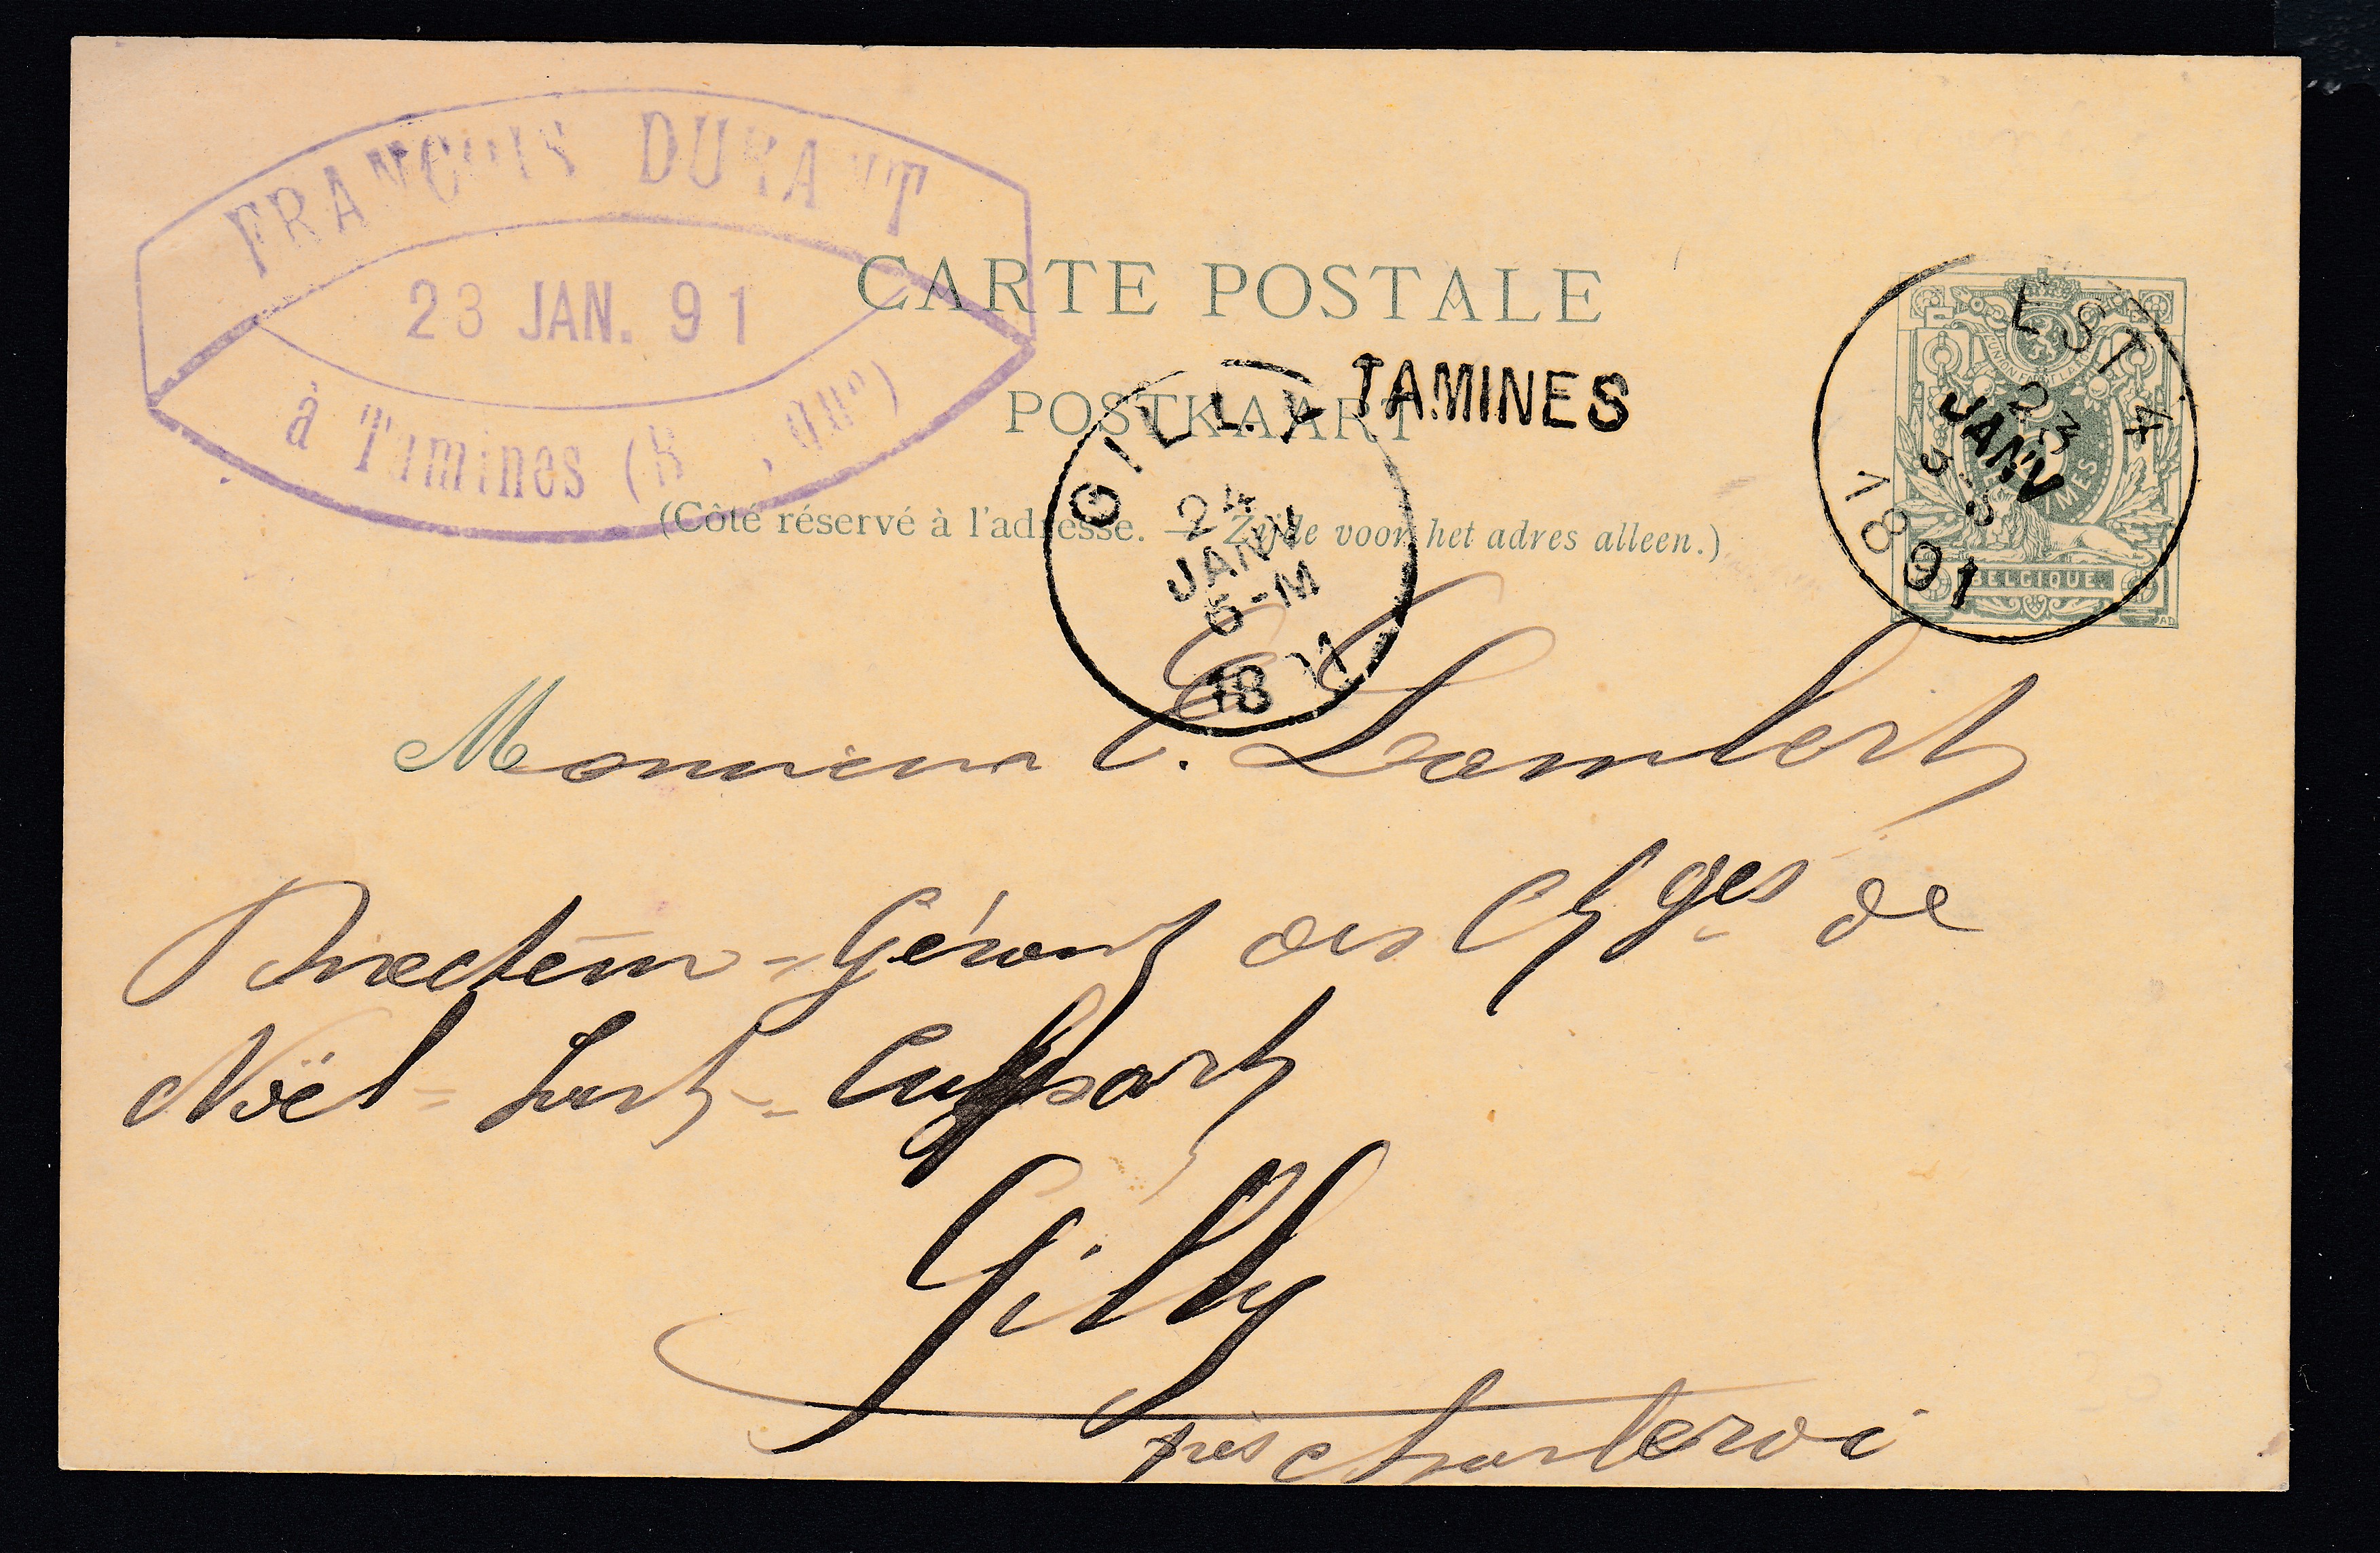 FRANÇOIS DURANT
23 JAN. 91
à Tamines (B
CARTE POSTALE
POSTKAART
TAMINES
(Côté réservé à l'adresse. — Zijde voor het adres alleen.)
GILLY
24
JANV
6-M
18 91
EST 4
23
JANV
1891
BELGIQUE
Monsieur C. Lambert
Directeur-Gérant des Chges de
Noël-Sart-Culpart
Gilly
près Charleroi